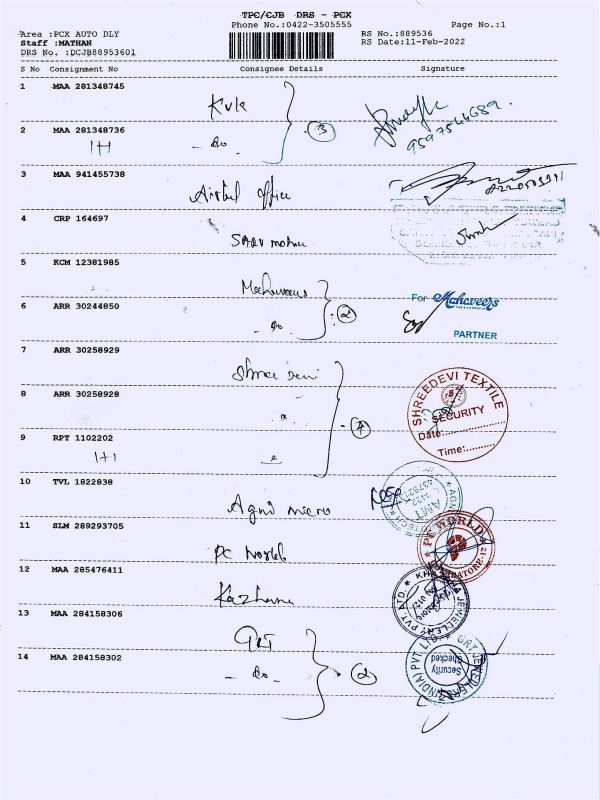 TPC/CJB DRS - PCX
Phone No.:0422-3505555 Page No.:1
Area :PCX AUTO DLY RS No.:889536
Staff :MATHAN RS Date:11-Feb-2022
DRS No. :DCJB88953601
S No Consignment No Consignee Details Signature
1 MAA 281348745
Kvk
3
9597544689.
2 MAA 281348736
1+1 - do -
3 MAA 941455738
Airtel Office
4 CRP 164697
5 KCM 12381985
Mahaveers
For Mahaveers
6 ARR 30244850
- do - 2
PARTNER
7 ARR 30258929
Shree Devi
8 ARR 30258928
SHREEDEVI TEXTILE
SECURITY
Date:
Time:
4
9 RPT 1102202
1+1
10 TVL 1822838
Agni micro
11 SLM 289293705
PC World
PC WORLD
12 MAA 285476411
Kazhana
13 MAA 284158306
GRT
14 MAA 284158302
- do - 2
Security
Checked